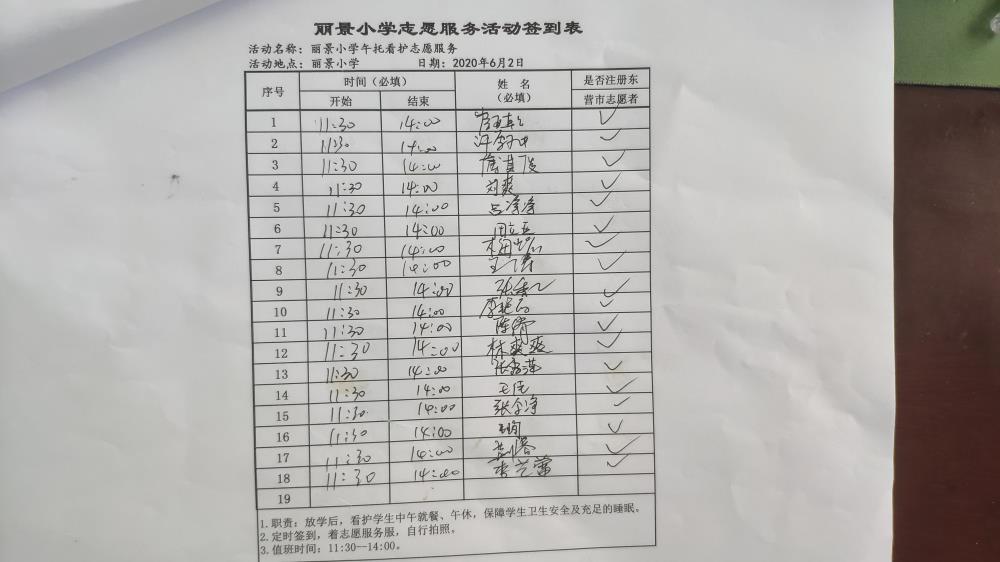 丽景小学志愿服务活动签到表
活动名称：丽景小学午托看护志愿服务
活动地点：丽景小学 日期：2020年6月2日
序号 时间（必填） 姓 名 （必填） 是否注册东营市志愿者
开始 结束
1 11:30 14:00 ✓
2 11:30 14:00 ✓
3 11:30 14:00 ✓
4 11:30 14:00 刘爽 ✓
5 11:30 14:00 吕净净 ✓
6 11:30 14:00 ✓
7 11:30 14:00 ✓
8 11:30 14:00 ✓
9 11:30 14:00 ✓
10 11:30 14:00 ✓
11 11:30 14:00 ✓
12 11:30 14:00 林爽爽 ✓
13 11:30 14:00 ✓
14 11:30 14:00 ✓
15 11:30 14:00 ✓
16 11:30 14:00 ✓
17 11:30 14:00 ✓
18 11:30 14:00 ✓
19
1.职责：放学后，看护学生中午就餐、午休，保障学生卫生安全及充足的睡眠。
2.定时签到，着志愿服务服，自行拍照。
3.值班时间：11:30--14:00。